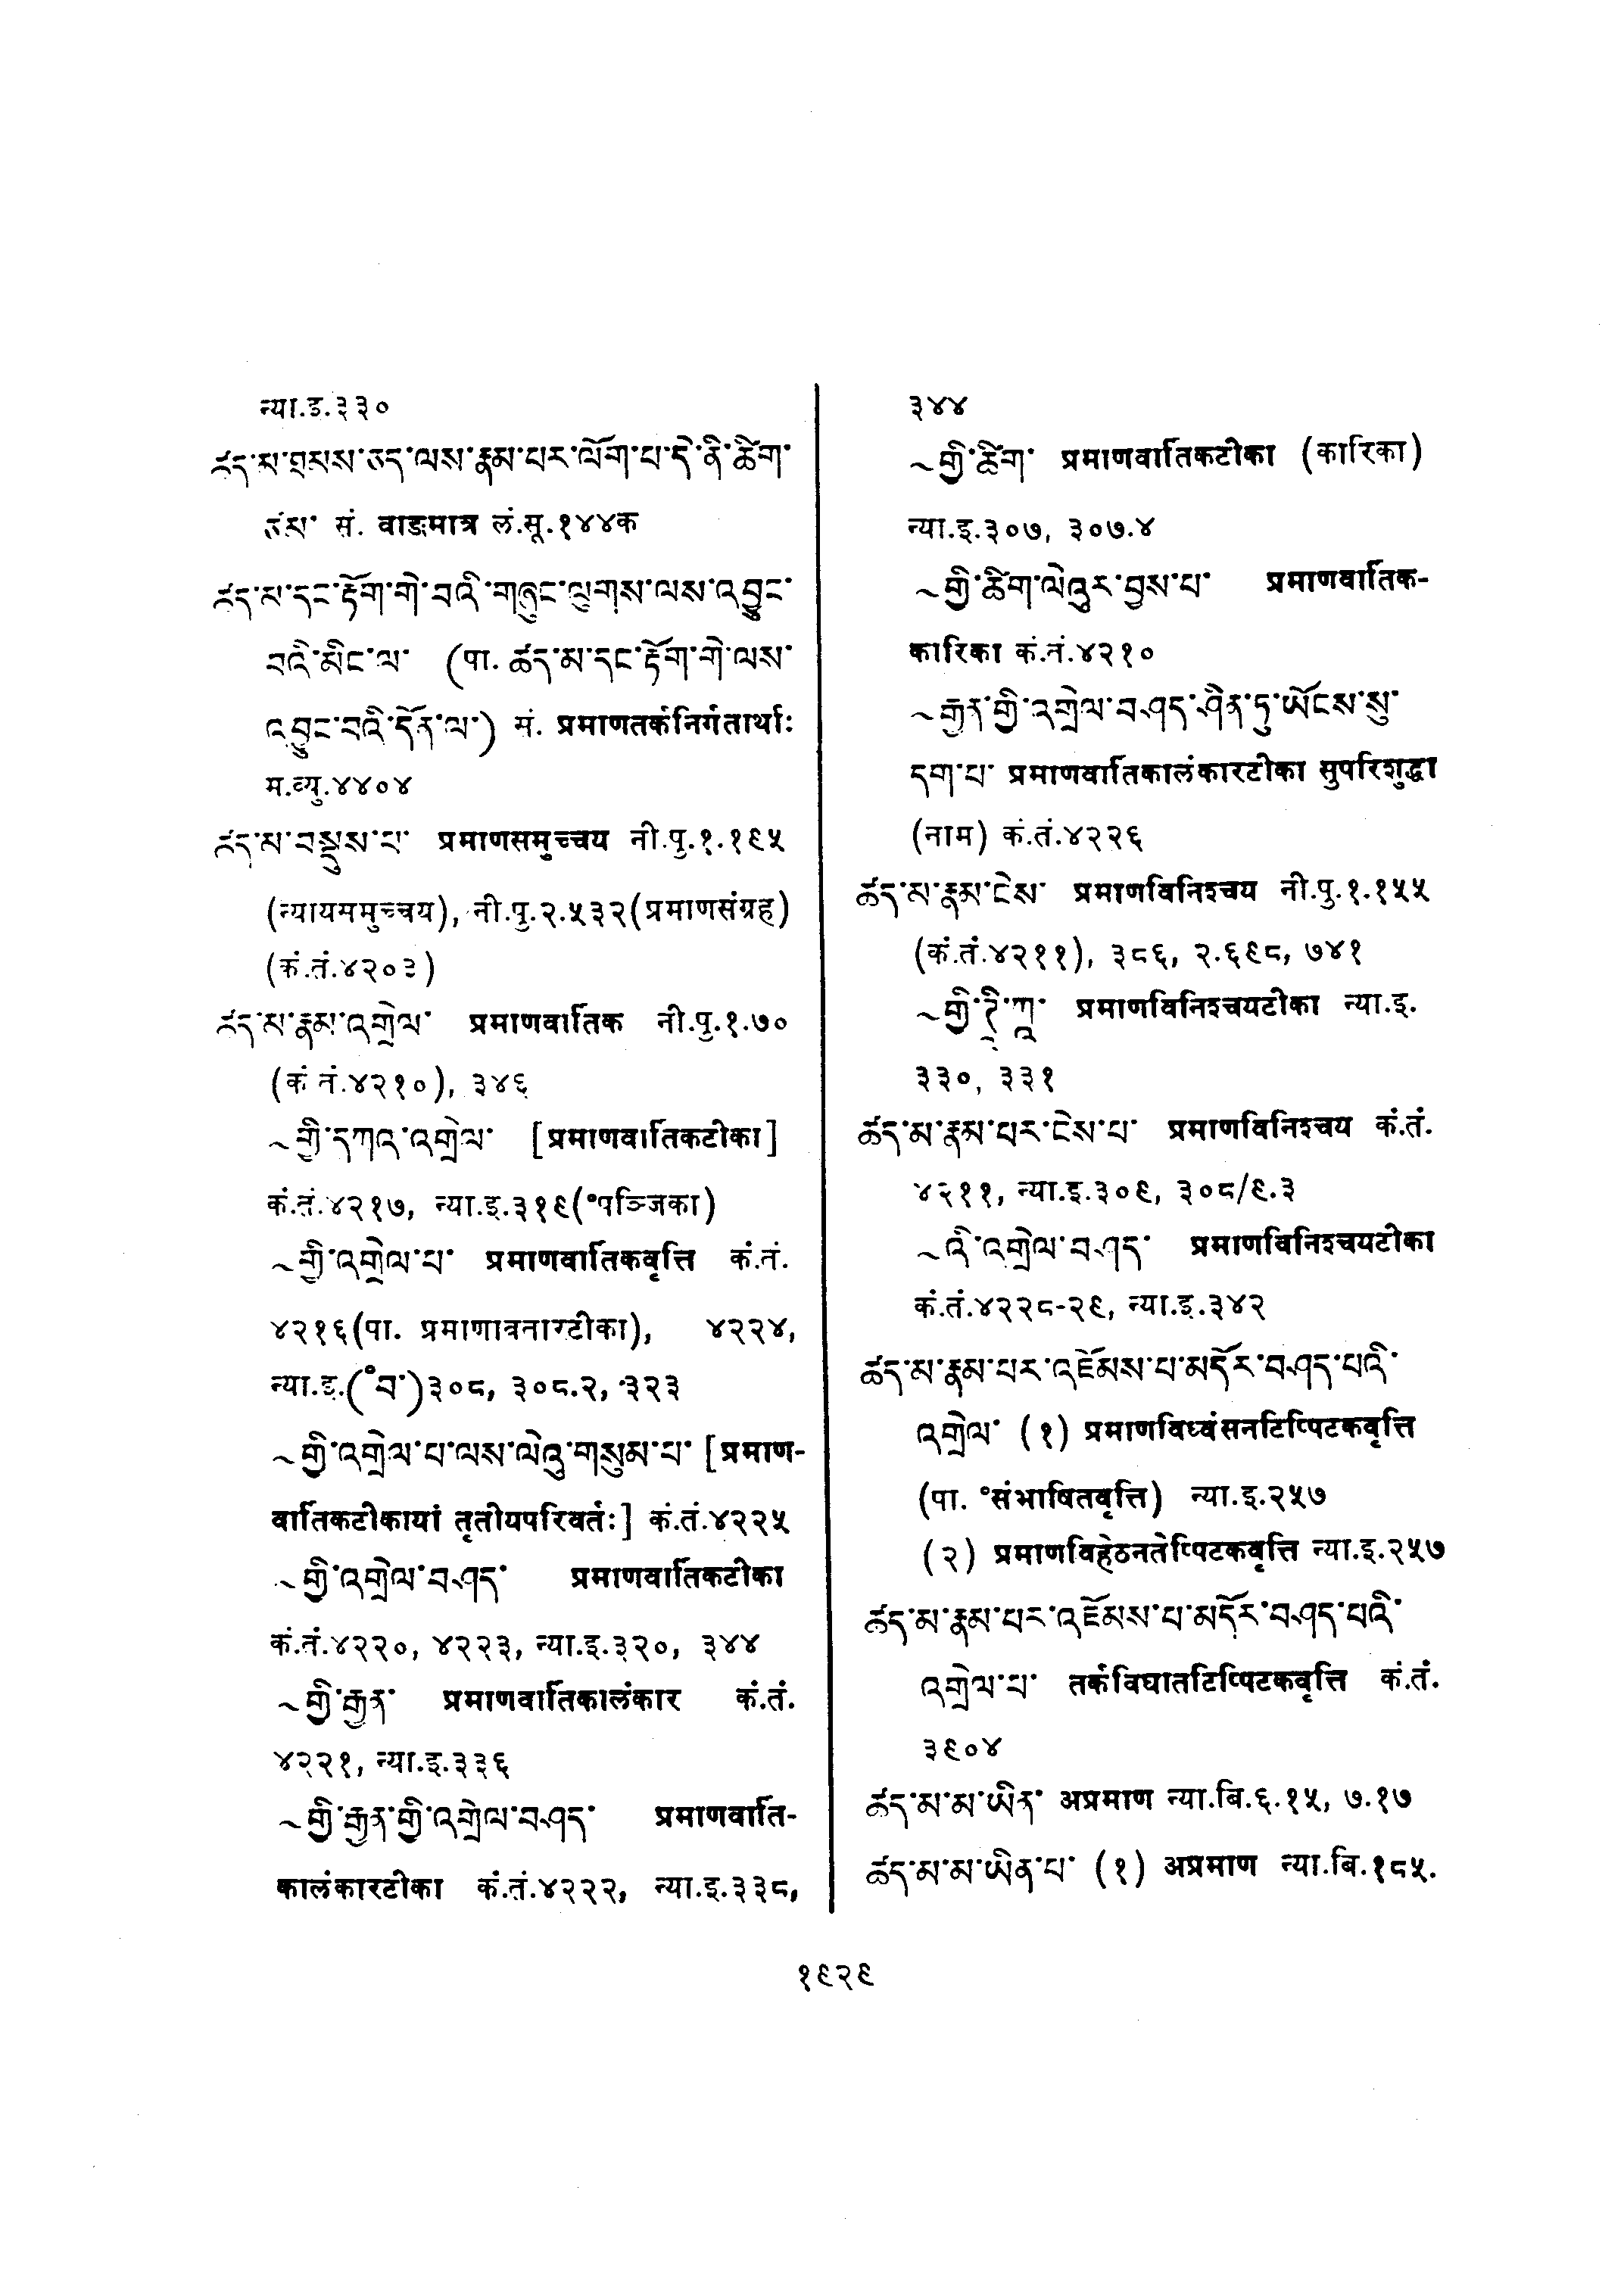 न्या.इ.३३०
ཚད་མ་གྲསས་ཅད་ལས་རྣམ་པར་ལོག་པ་དེ་ནི་ཚིག་
ཙམ་ सं. वाङमात्र लं.सू.१४४क
ཚད་མ་དང་རྟོག་གེ་བའི་གཞུང་ལུགས་ལས་འབྱུང་
བའི་མིང་ལ་ (पा. ཚད་མ་དང་རྟོག་གེ་ལས་
འབྱུང་བའི་དོན་ལ་) सं. प्रमाणतर्कनिर्गतार्थाः
म.व्यु.४४०४
ཚད་མ་བསྡུས་པ་ प्रमाणसमुच्चय नी.पु.१.१९५
(न्यायसमुच्चय), नी.पु.२.५३२(प्रमाणसंग्रह)
(कं.तं.४२०३)
ཚད་མ་རྣམ་འགྲེལ་ प्रमाणवार्तिक नी.पु.१.७०
(कं तं.४२१०), ३४६
~གྱི་དཀའ་འགྲེལ་ [प्रमाणवार्तिकटीका]
कं.तं.४२१७, न्या.इ.३१९(°पञ्जिका)
~གྱི་འགྲེལ་པ་ प्रमाणवार्तिकवृत्ति कं.तं.
४२१६(पा. प्रमाणात्रनारटीका), ४२२४,
न्या.इ.(°བ་)३०८, ३०८.२, ३२३
~གྱི་འགྲེལ་པ་ལས་ལེའུ་གསུམ་པ་ [प्रमाण-
वार्तिकटीकायां तृतीयपरिवर्तः] कं.तं.४२२५
~གྱི་འགྲེལ་བཤད་ प्रमाणवार्तिकटीका
कं.तं.४२२०, ४२२३, न्या.इ.३२०, ३४४
~གྱི་རྒྱན་ प्रमाणवार्तिकालंकार कं.तं.
४२२१, न्या.इ.३३६
~གྱི་རྒྱན་གྱི་འགྲེལ་བཤད་ प्रमाणवार्ति-
कालंकारटीका कं.तं.४२२२, न्या.इ.३३८,
३४४
~གྱི་ཚིག་ प्रमाणवार्तिकटीका (कारिका)
न्या.इ.३०७, ३०७.४
~གྱི་ཚིག་ལེའུར་བྱས་པ་ प्रमाणवार्तिक-
कारिका कं.तं.४२१०
~རྒྱན་གྱི་འགྲེལ་བཤད་ཤིན་ཏུ་ཡོངས་སུ་
དག་པ་ प्रमाणवार्तिकालंकारटीका सुपरिशुद्धा
(नाम) कं.तं.४२२६
ཚད་མ་རྣམ་ངེས་ प्रमाणविनिश्चय नी.पु.१.१५५
(कं.तं.४२११), ३८६, २.६९८, ७४१
~གྱི་ཊཱི་ཀཱ་ प्रमाणविनिश्चयटीका न्या.इ.
३३०, ३३१
ཚད་མ་རྣམ་པར་ངེས་པ་ प्रमाणविनिश्चय कं.तं.
४२११, न्या.इ.३०९, ३०८/९.३
~འི་འགྲེལ་བཤད་ प्रमाणविनिश्चयटीका
कं.तं.४२२८-२९, न्या.इ.३४२
ཚད་མ་རྣམ་པར་འཇོམས་པ་མདོར་བཤད་པའི་
འགྲེལ་ (१) प्रमाणविध्वंसनटिप्पिटकवृत्ति
(पा. °संभाषितवृत्ति) न्या.इ.२५७
(२) प्रमाणविहेठनतेप्पिटकवृत्ति न्या.इ.२५७
ཚད་མ་རྣམ་པར་འཇོམས་པ་མདོར་བཤད་པའི་
འགྲེལ་པ་ तर्कविघातटिप्पिटकवृत्ति कं.तं.
३९०४
ཚད་མ་མ་ཡིན་ अप्रमाण न्या.बि.६.१५, ७.१७
ཚད་མ་མ་ཡིན་པ་ (१) अप्रमाण न्या.बि.१८५.
१९२९